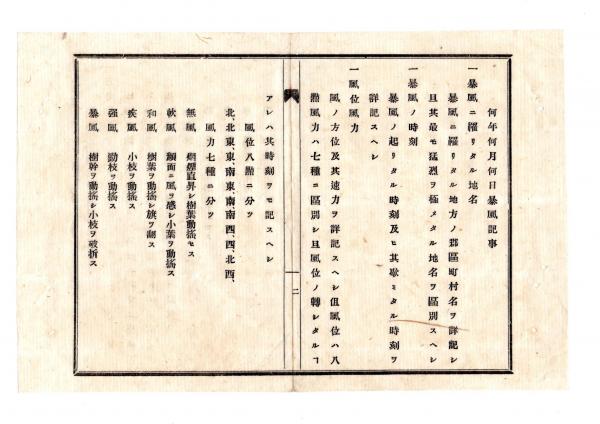 何年何月何日暴風記事
一暴風ニ罹リタル地名
暴風ニ罹リタル地方ノ郡區町村名ヲ詳記シ
且其最モ猛烈ヲ極メタル地名ヲ區別スヘシ
一暴風ノ時刻
暴風ノ起リタル時刻及ヒ其歇ミタル時刻ヲ
詳記スヘシ
一風位風力
風ノ方位及其速力ヲ詳記スヘシ但風位ハ八
點風力ハ七種ニ區別シ且風位ノ轉シタルヿ
二
アレハ其時刻ヲモ記スヘシ
風位八點ニ分ツ
北、北東、東、南東、南、南西、西、北西、
風力七種ニ分ツ
無風 烟煙直昇シ樹葉動搖セス
軟風 顏面ニ風ヲ感シ小葉ヲ動搖ス
和風 樹葉ヲ動搖シ旗ヲ翻ス
疾風 小枝ヲ動搖ス
强風 勁枝ヲ動搖ス
暴風 樹幹ヲ動搖シ小枝ヲ破折ス